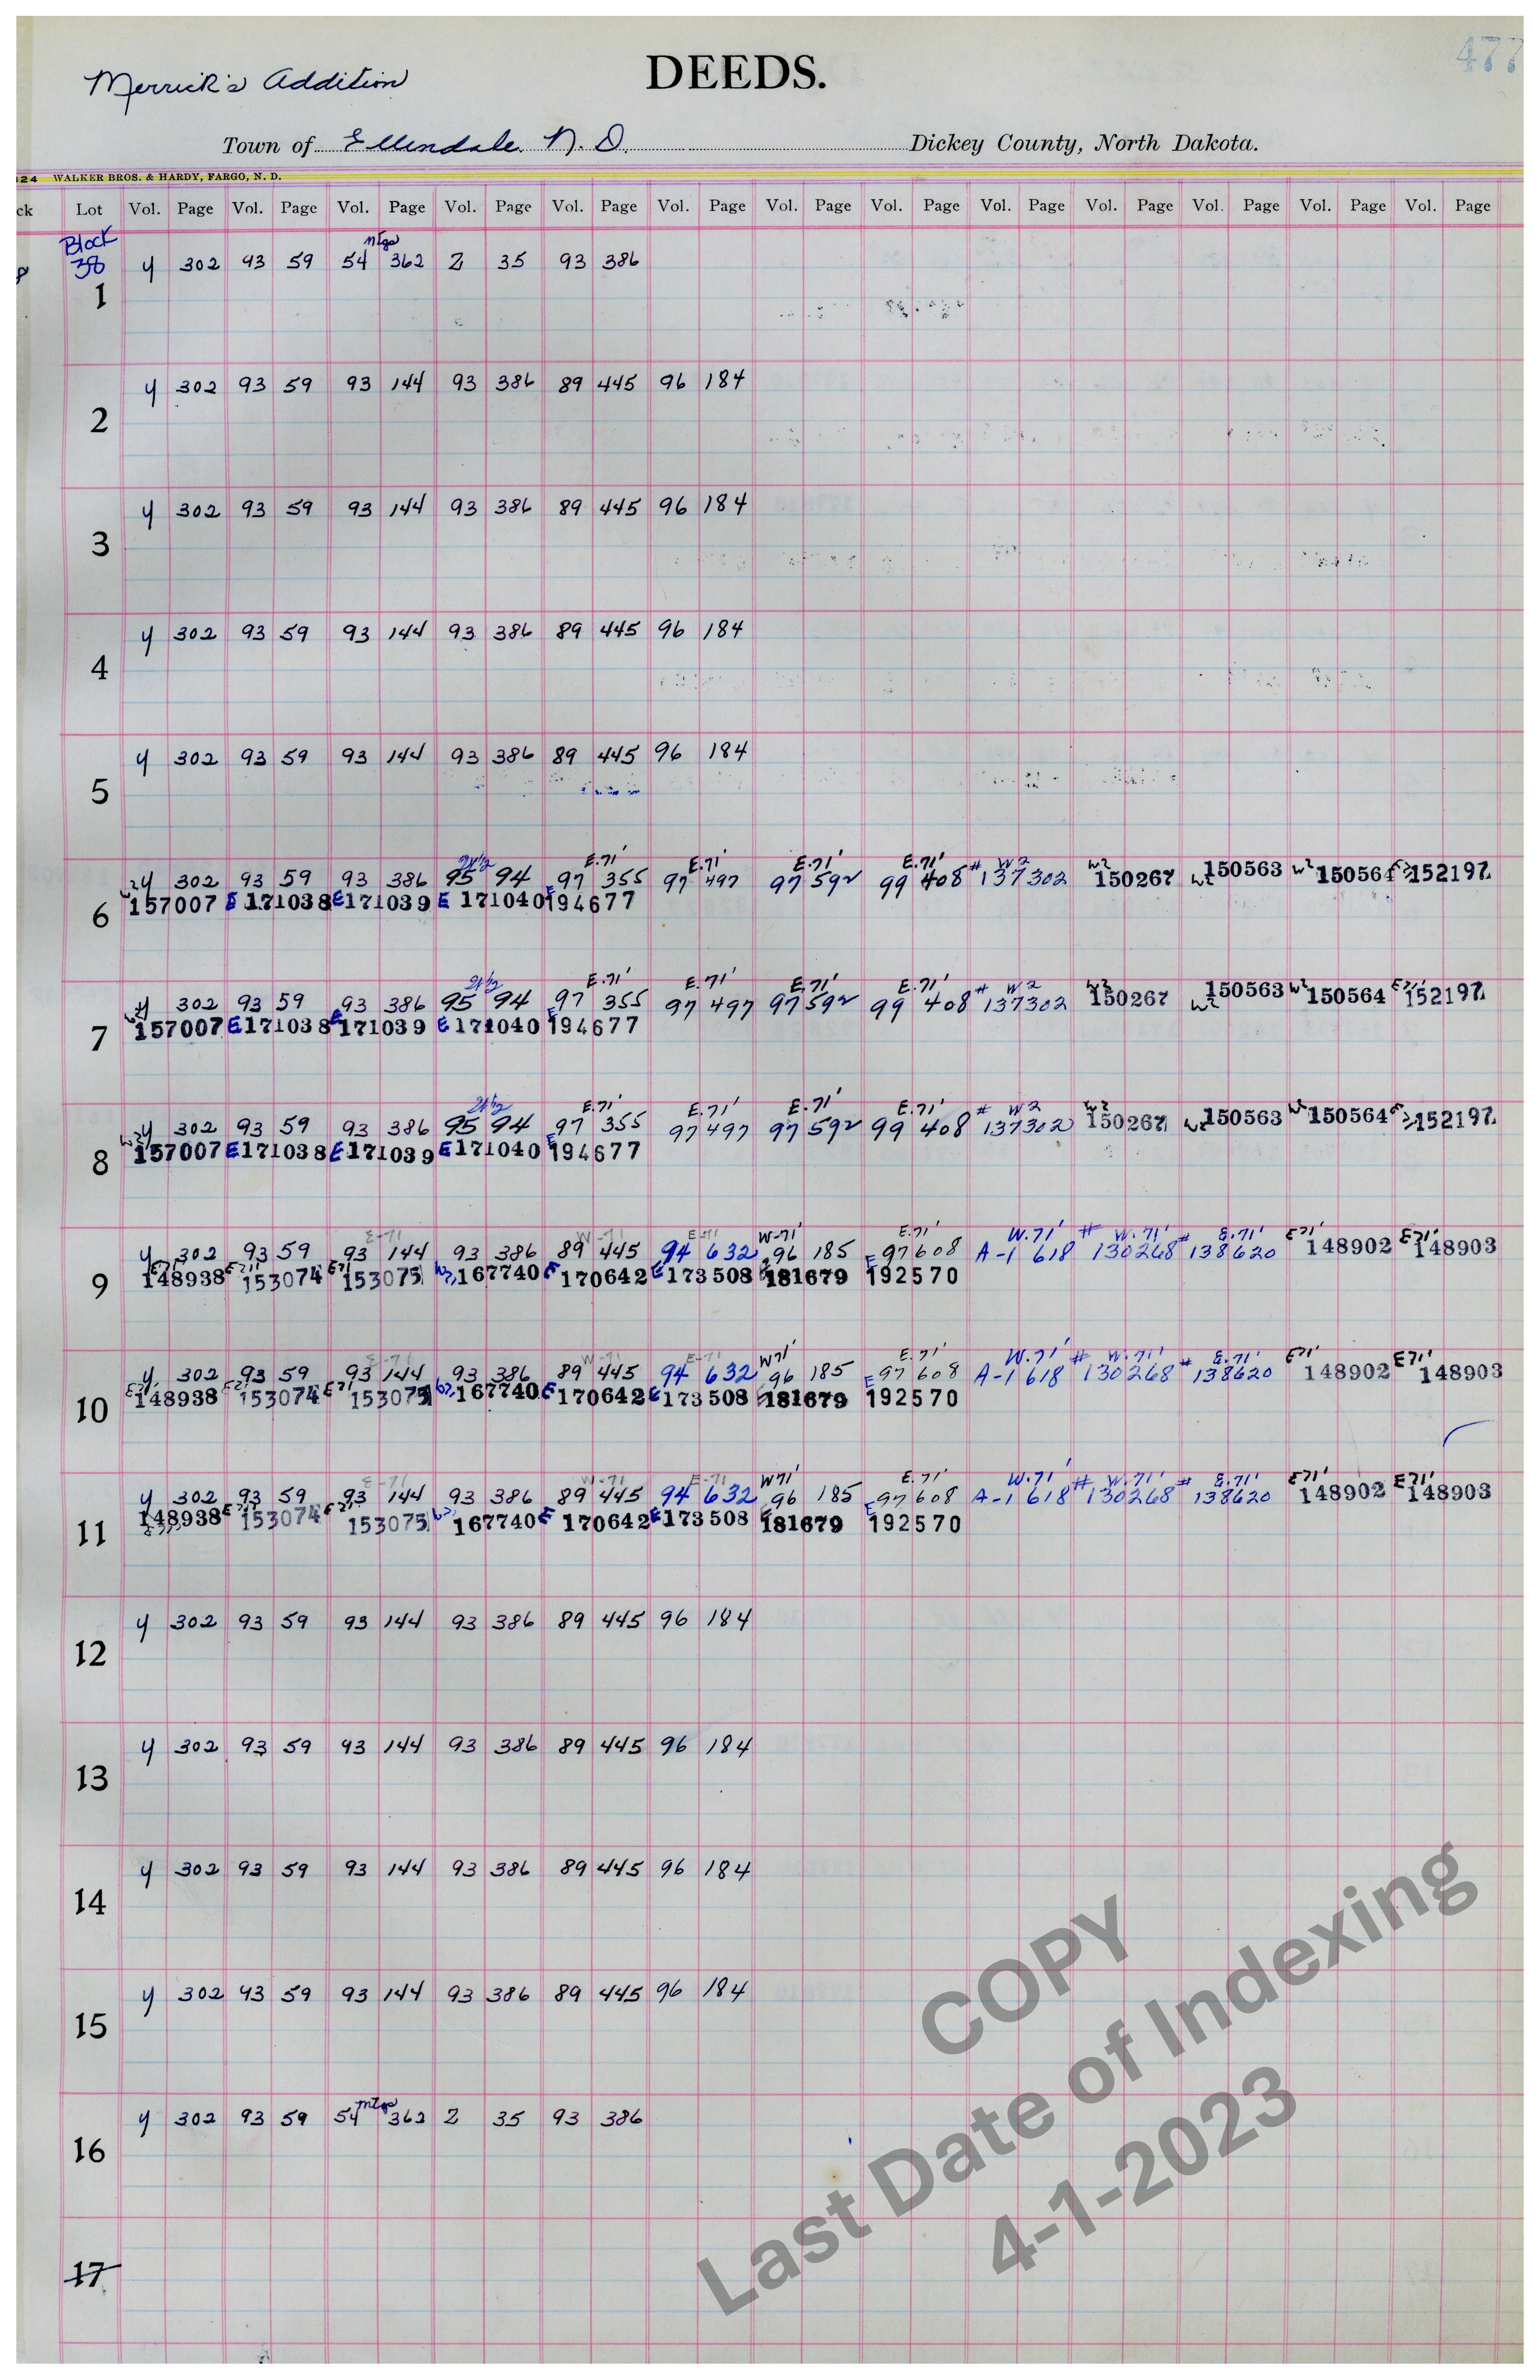 477
Merrick's Addition
DEEDS.
Town of Ellendale N. D. Dickey County, North Dakota.
WALKER BROS. & HARDY, FARGO, N. D.
ck Lot Vol. Page Vol. Page Vol. Page Vol. Page Vol. Page Vol. Page Vol. Page Vol. Page Vol. Page Vol. Page Vol. Page Vol. Page Vol. Page
Block
38
mtgs
y 302 93 59 54 362 Z 35 93 386
1
y 302 93 59 93 144 93 386 89 445 96 184
2
y 302 93 59 93 144 93 386 89 445 96 184
3
y 302 93 59 93 144 93 386 89 445 96 184
4
y 302 93 59 93 144 93 386 89 445 96 184
5
E.71' E.71' E.71' E.71' # W2
y 302 93 59 93 386 95 94 97 355 97 497 97 592 99 408 137302 W2 150267 W2 150563 W2 150564 152197
157007 E 171038 E 171039 E 171040 E 194677
6
E.71' E.71' E.71' E.71' # W2
y 302 93 59 93 386 95 94 97 355 97 497 97 592 99 408 137302 W2 150267 W2 150563 W2 150564 152197
157007 E 171038 E 171039 E 171040 E 194677
7
E.71' E.71' E.71' E.71' # W2
y 302 93 59 93 386 95 94 97 355 97 497 97 592 99 408 137302 W2 150267 W2 150563 W2 150564 152197
157007 E 171038 E 171039 E 171040 E 194677
8
E-71 W-71 E-71 W-71' E.71' W.71' # W.71' # E.71' E71' E71'
y 302 93 59 93 144 93 386 89 445 94 632 96 185 97 608 A-1 618 130268 138620 148902 148903
148938 E71' 153074 E71' 153075 167740 E 170642 E 173508 181679 E 192570
9
E-71 W-71 E-71 W71' E.71' W.71' # W.71' # E.71' E71' E71'
y 302 93 59 93 144 93 386 89 445 94 632 96 185 97 608 A-1 618 130268 138620 148902 148903
E71' 148938 153074 E71' 153075 167740 E 170642 E 173508 181679 E 192570
10
E-71 W-71 E-71 W71' E.71' W.71' # W.71' # E.71' E71' E71'
y 302 93 59 93 144 93 386 89 445 94 632 96 185 97 608 A-1 618 130268 138620 148902 148903
148938 E71' 153074 E71' 153075 167740 E 170642 E 173508 181679 E 192570
11
y 302 93 59 93 144 93 386 89 445 96 184
12
y 302 93 59 93 144 93 386 89 445 96 184
13
y 302 93 59 93 144 93 386 89 445 96 184
14
y 302 93 59 93 144 93 386 89 445 96 184
15
mtgs
y 302 93 59 54 362 Z 35 93 386
16
17
COPY
Last Date of Indexing
4-1-2023